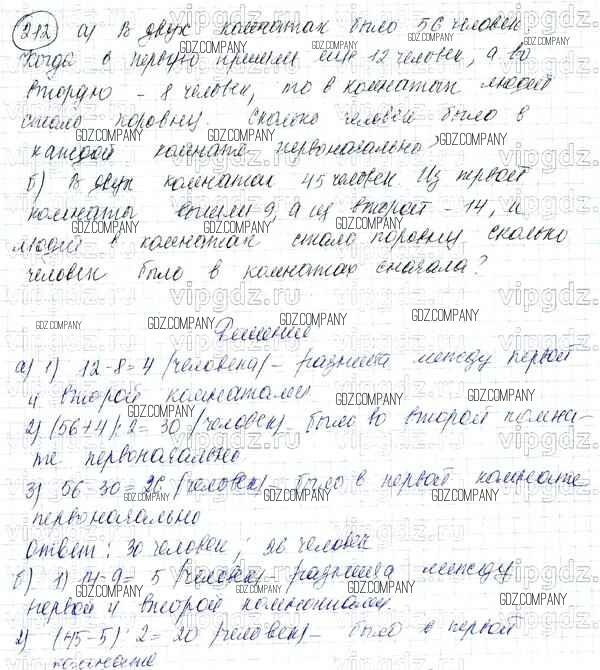 212 а) В двух комнатах было 56 человек
Когда в первую пришли ещё 12 человек, а во
вторую - 8 человек, то в комнатах людей
стало поровну. Сколько человек было в
каждой комнате первоначально?
б) В двух комнатах 45 человек. Из первой
комнаты вышли 9, а из второй - 14, и
людей в комнатах стало поровну. Сколько
человек было в комнатах сначала?
Решение
а) 1) 12-8=4 (человека) - разница между первой
и второй комнатами
2) (56+4):2=30 (человек) - было во второй комна-
те первоначально
3) 56-30=26 (человек) - было в первой комнате
первоначально
Ответ: 30 человек; 26 человек
б) 1) 14-9=5 (человек) - разница между
первой и второй комнатами.
2) (45-5):2=20 (человек) - было в первой
комнате
GDZ.COMPANY
vipgdz.ru